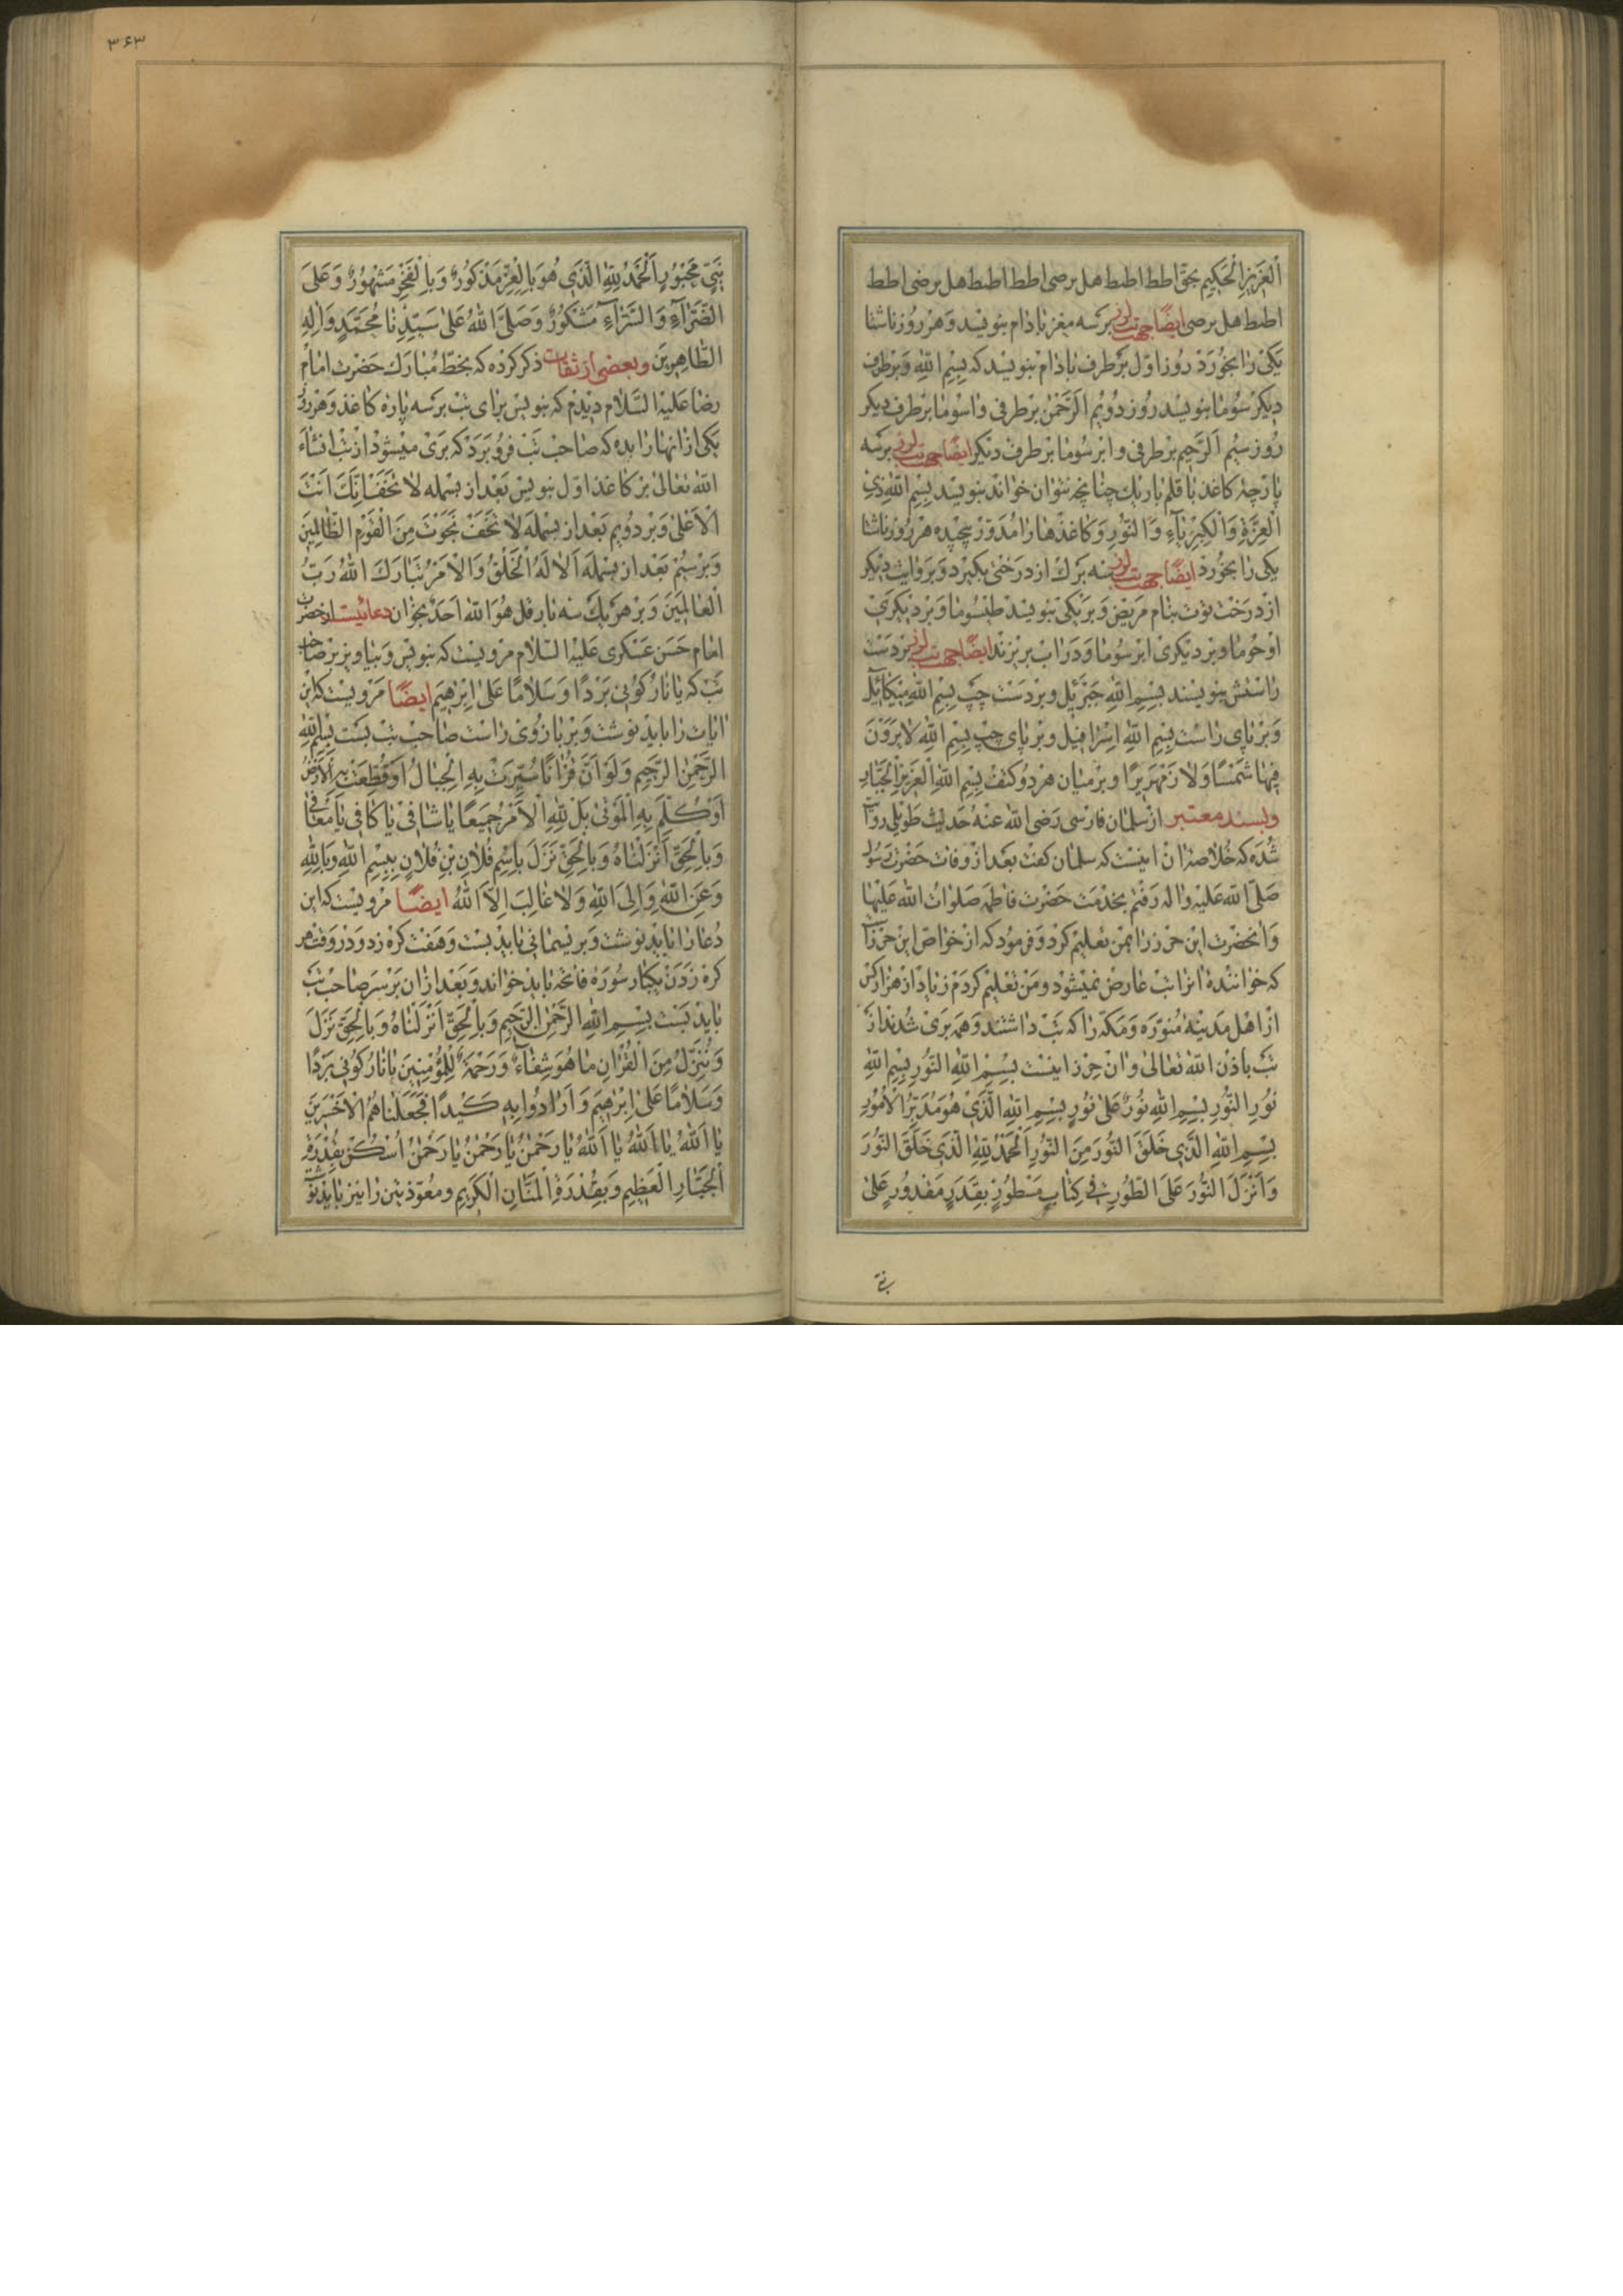 اَلْعَزِیزِ الْحَکِیمِ بحقّ اطط اطط اطط هل برصی اطط اطط اطط هل برضی اطط
اطط هل برصی ایضًا جهت تب لرز بر سه مغز بادام بنویسد و هر روز ناشتا
یکی را بخورد روز اوّل بر طرف بادام بنویسد که بِسْمِ اللّهِ وَ بر طرف
دیکر سُوما بنویسد روز دویم اَلرَّحْمٰنِ بر طرفی و اسُوما بر طرف دیکر
روز سیُم اَلرَّحِیمِ بر طرفی و ابر سُوما بر طرف دیکر ایضًا جهت تب لرز بر سه
پارچهٔ کاغذ با قلم باریك چنانچه نتوان خواند بنویسد بِسْمِ اللّهِ ذِی
الْعِزَّةِ وَالْکِبْرِیَآءِ وَالنُّورِ وَ کاغذها را مُدَوّر پیچیده هر روز ناشتا
یکی را بخورد ایضًا جهت تب لرز سه برك از درختی بکیرد و بروایت دیکر
از درخت توت بنام مریض و بر یکی بنویسد طبسُوما و بر دیکری
اوحُوما و بر دیکری ابرسُوما و در اب بریزند ایضًا جهت تب لرز بر دست
راستش بنویسند بِسْمِ اللّهِ جَبْرَئیل و بر دست چپ بِسْمِ اللّهِ مِیکَآئیل
و بر پای راست بِسْمِ اللّهِ اِسْرٰافیل و بر پای چپ بِسْمِ اللّهِ لاٰ یَرَوْنَ
فِیهٰا شَمْسًا وَ لاٰ زَمْهَرِیرًا و بر میان هر دو کتف بِسْمِ اللّهِ الْعَزِیزِ الْجَبّٰارِ
و بسند معتبر از سلمان فارسی رَضی اللّهُ عنهُ حدیث طویلی روایت
شده که خلاصهٔ ان اینست که سلمان کفت بعد از وفات حضرت رسول
صلّی اللّه علیه واله رفتم بخدمت حضرت فاطمه صلوات اللّه علیها
و انحضرت این حرز را بمن تعلیم کرد و فرمود که از خواصّ این حرز انست
که خوانندهٔ انرا تب عارض نمیشود و من تعلیم کردم زیاد از هزار کس
از اهل مدینهٔ منوّره و مکّه را که تب داشتند و همه بری شدند از
تب باذن اللّه تعالی و ان حرز اینست بِسْمِ اللّهِ النُّورِ بِسْمِ اللّهِ
نُورِ النُّورِ بِسْمِ اللّهِ نُورٌ عَلیٰ نُورٍ بِسْمِ اللّهِ الَّذِی هُوَ مُدَبِّرُ الْاُمُورِ
بِسْمِ اللّهِ الَّذِی خَلَقَ النُّورَ مِنَ النُّورِ اَلْحَمْدُ لِلّهِ الَّذِی خَلَقَ النُّورَ
وَ اَنْزَلَ النُّورَ عَلَی الطُّورِ فِی کِتٰابٍ مَسْطُورٍ بِقَدَرٍ مَقْدُورٍ عَلیٰ
۳۶۳
نَبِیٍّ مَحْبُورٍ اَلْحَمْدُ لِلّهِ الَّذِی هُوَ بِالْعِزِّ مَذْکُورٌ وَ بِالْفَخْرِ مَشْهُورٌ وَ عَلَی
الضَّرّٰآءِ وَ السَّرّٰآءِ مَشْکُورٌ وَ صَلَّی اللّهُ عَلیٰ سَیِّدِنٰا مُحَمَّدٍ وَ اٰلِهِ
الطّٰاهِرِینَ و بعضی از ثقات ذکر کرده که بخطّ مبارك حضرت امام
رضا علیه السّلام دیدم که بنویس برای تب بر سه پارهٔ کاغذ و هر روز
یکی از انها را بده که صاحب تب فرو برد که بری میشود از تب انشاء
اللّه تعالی بر کاغذ اوّل بنویس بعد از بسمله لاٰ تَخَفْ اِنَّكَ اَنْتَ
الْاَعْلیٰ و بر دویم بعد از بسمله لاٰ تَخَفْ نَجَوْتَ مِنَ الْقَوْمِ الظّٰالِمِینَ
و بر سیم بعد از بسمله اَلاٰ لَهُ الْخَلْقُ وَ الْاَمْرُ تَبٰارَكَ اللّهُ رَبُّ
الْعٰالَمِینَ و بر هر یك سه بار قل هو اللّه احد بخوان دعائیست از حضرت
امام حسن عسکری علیه السّلام مرویست که بنویس و بیاویز بر صاحب
تب که یٰا نٰارُ کُونِی بَرْدًا وَ سَلاٰمًا عَلیٰ اِبْرٰهِیمَ ایضًا مرویست که این
ایات را باید نوشت و بر بازوی راست صاحب تب بست بِسْمِ اللّهِ
الرَّحْمٰنِ الرَّحِیمِ وَ لَوْ اَنَّ قُرْاٰنًا سُیِّرَتْ بِهِ الْجِبٰالُ اَوْ قُطِّعَتْ بِهِ الْاَرْضُ
اَوْ کُلِّمَ بِهِ الْمَوْتیٰ بَلْ لِلّهِ الْاَمْرُ جَمِیعًا یٰا شٰافِی یٰا کٰافِی یٰا مُعٰافِی
وَ بِالْحَقِّ اَنْزَلْنٰاهُ وَ بِالْحَقِّ نَزَلَ بِاسْمِ فُلاٰنِ بْنِ فُلاٰنٍ بِبِسْمِ اللّهِ وَ بِاللّهِ
وَ عَنِ اللّهِ وَ اِلَی اللّهِ وَ لاٰ غٰالِبَ اِلاَّ اللّهُ ایضًا مرویست که این
دعا را باید نوشت و بر ریسمانی باید بست و هفت کره زد و در وقت هر
کره زدن یکبار سورهٔ فاتحه باید خواند و بعد از ان بر سر صاحب تب
باید بست بِسْمِ اللّهِ الرَّحْمٰنِ الرَّحِیمِ وَ بِالْحَقِّ اَنْزَلْنٰاهُ وَ بِالْحَقِّ نَزَلَ
وَ نُنَزِّلُ مِنَ الْقُرْاٰنِ مٰا هُوَ شِفٰآءٌ وَ رَحْمَةٌ لِلْمُؤْمِنِینَ یٰا نٰارُ کُونِی بَرْدًا
وَ سَلاٰمًا عَلیٰ اِبْرٰهِیمَ وَ اَرٰادُوا بِهِ کَیْدًا فَجَعَلْنٰاهُمُ الْاَخْسَرِینَ
یٰا اَللّهُ یٰا اَللّهُ یٰا اَللّهُ یٰا رَحْمٰنُ یٰا رَحْمٰنُ یٰا رَحْمٰنُ اُسْکُنْ بِقُدْرَةِ
الْجَبّٰارِ الْعَظِیمِ وَ بِقُدْرَةِ الْمَنّٰانِ الْکَرِیمِ و معوّذتین را نیز باید نوشت